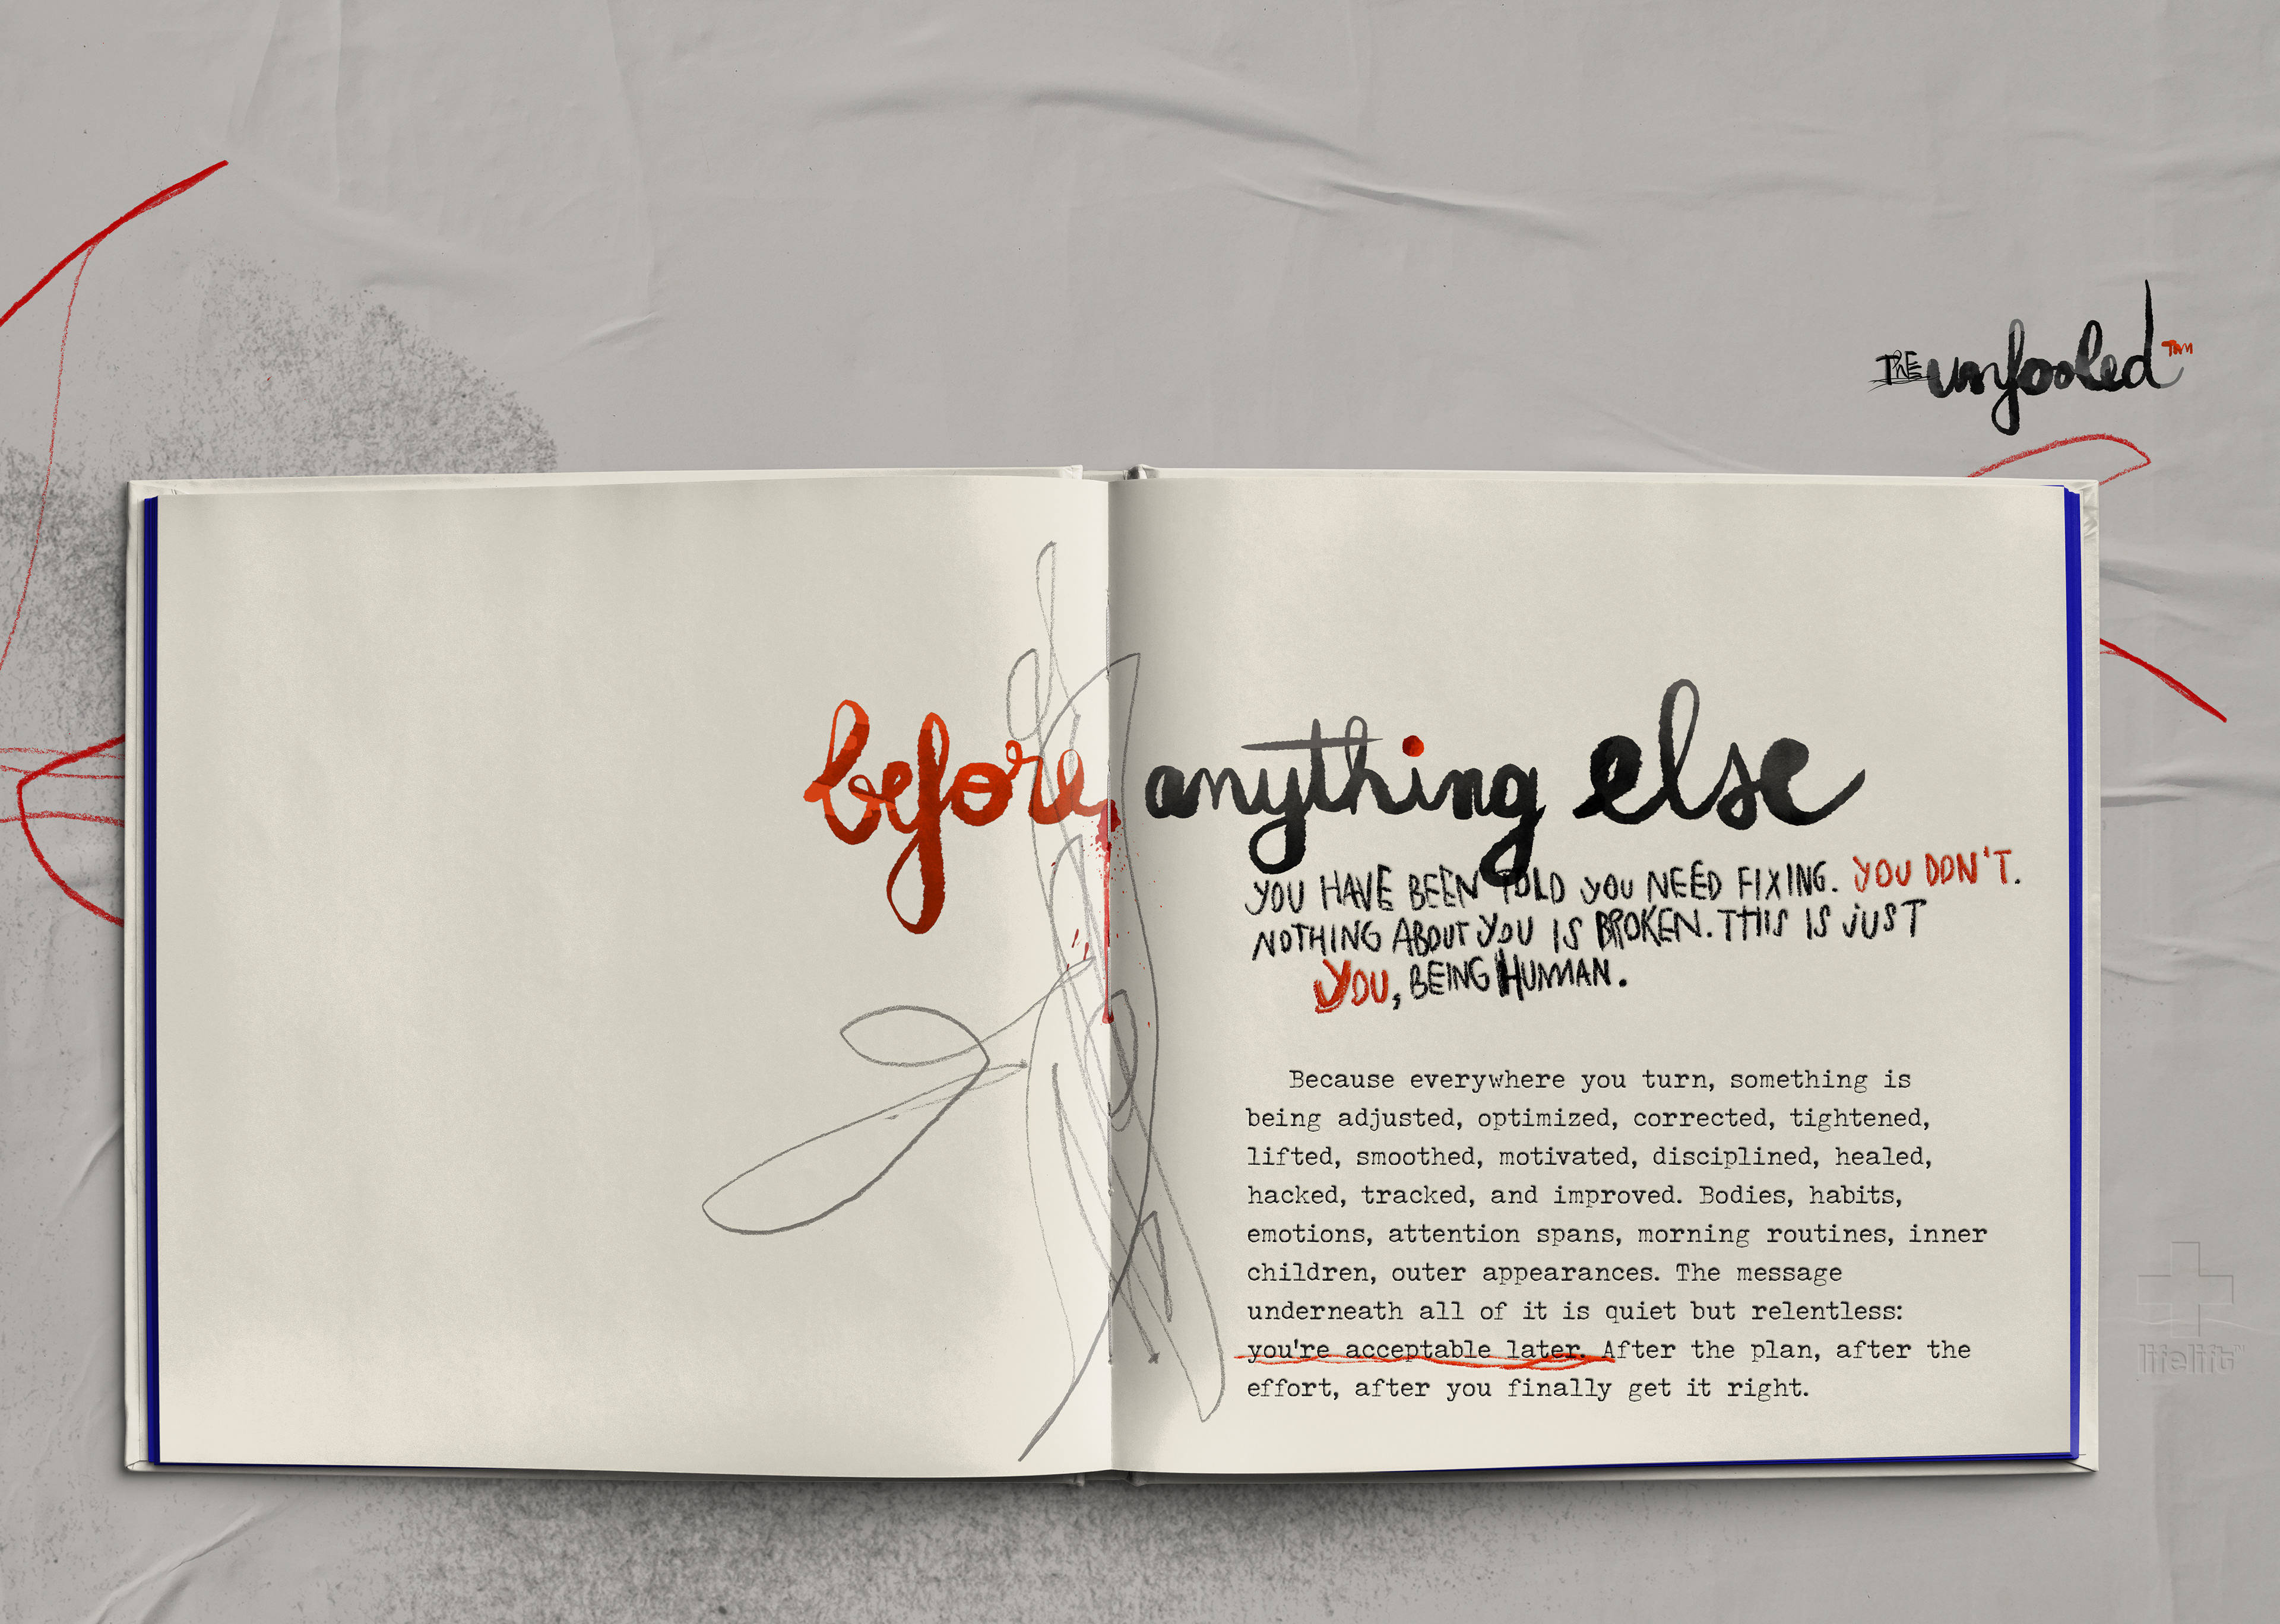 THE unfooled TM
before anything else
YOU HAVE BEEN TOLD YOU NEED FIXING. YOU DON'T.
NOTHING ABOUT YOU IS BROKEN. THIS IS JUST
YOU, BEING HUMAN.
Because everywhere you turn, something is
being adjusted, optimized, corrected, tightened,
lifted, smoothed, motivated, disciplined, healed,
hacked, tracked, and improved. Bodies, habits,
emotions, attention spans, morning routines, inner
children, outer appearances. The message
underneath all of it is quiet but relentless:
you're acceptable later. After the plan, after the
effort, after you finally get it right.
lifelift™